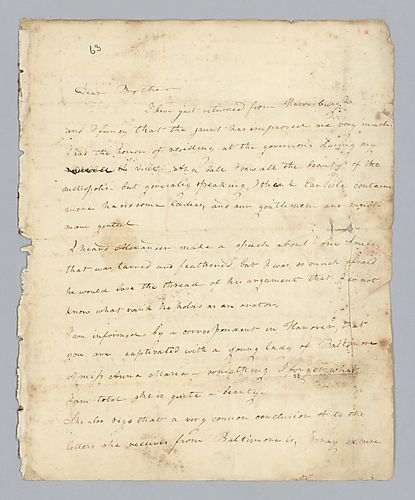 63
Dear Brother
I have just returned from Harrisburg
and I fancy that the jaunt has improved me very much
I had the honor of residing at the governors during my
visit. At a ball I saw all the beauty of the
metropolis but generally speaking, I think Carlisle contains
more handsome ladies, and our gentlemen are much
more genteel.
I heard Alexander make a speech about one
that was tarred and feathered but I was so much afraid
he would lose the thread of his argument that I do not
know what rank he holds as an orator.
I am informed by a correspondent in Hanover, that
you are captivated with a young lady of Baltimore
a miss Anna Maria - something I forget what
I am told she is quite a beauty.
She also says that a very common conclusion to the
letters she receives from Baltimore is, pray excuse